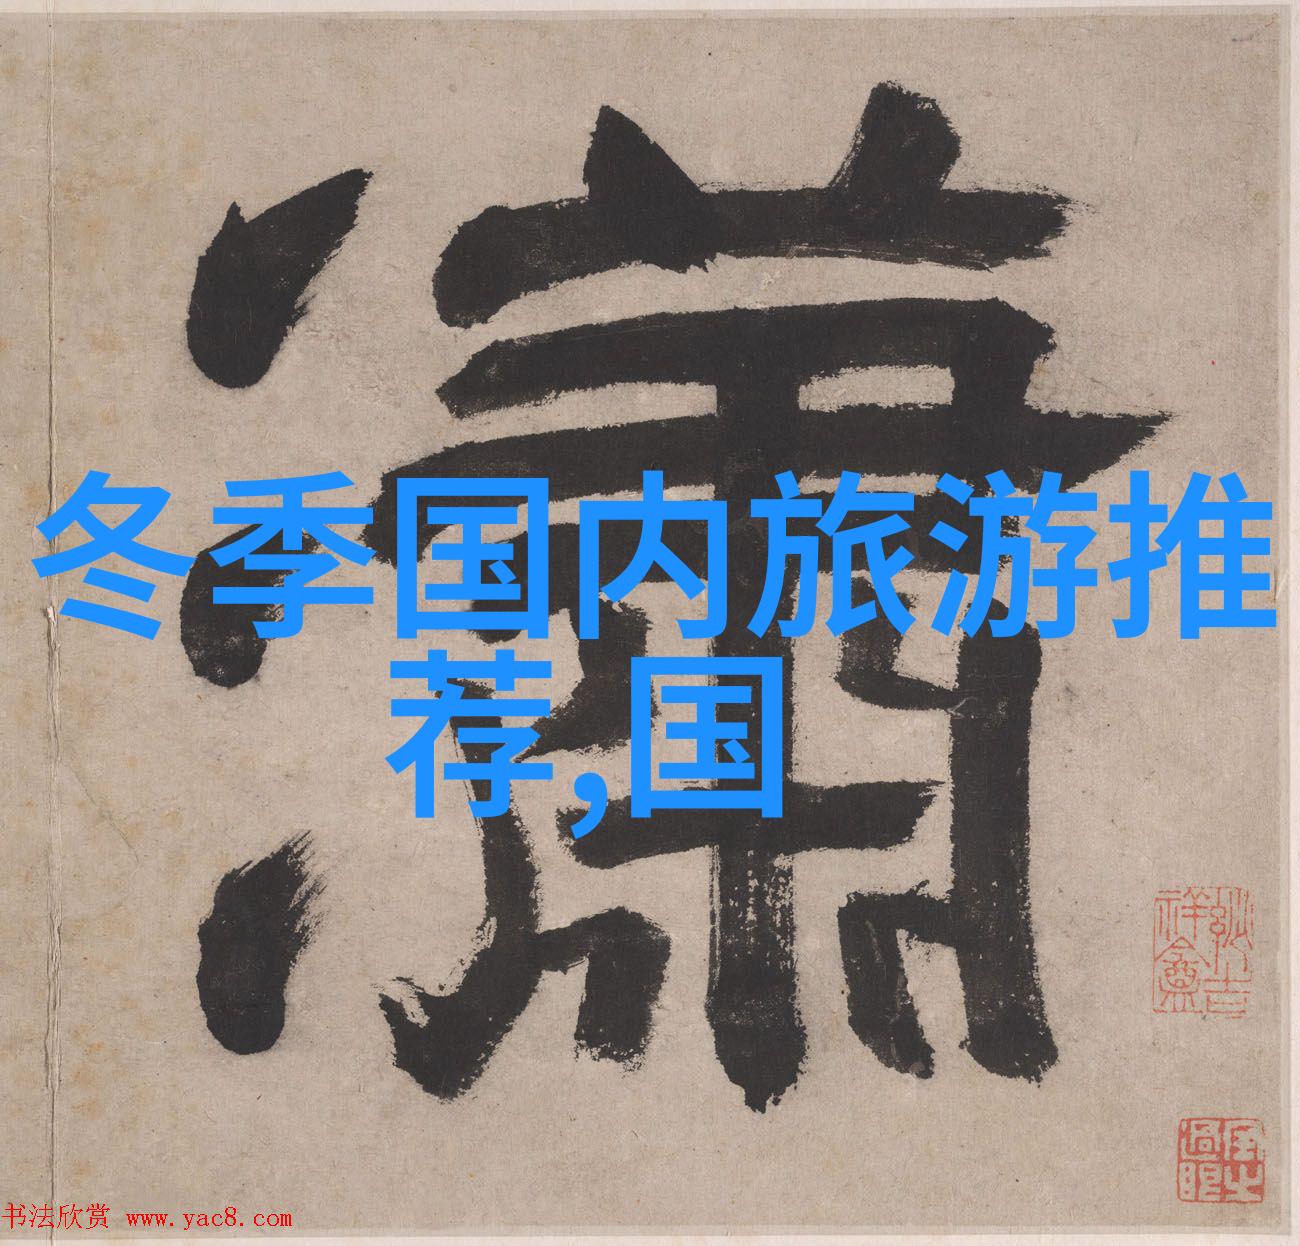 瀟
冬季国内旅游推
荐,国
书法欣赏 www.yac8.com